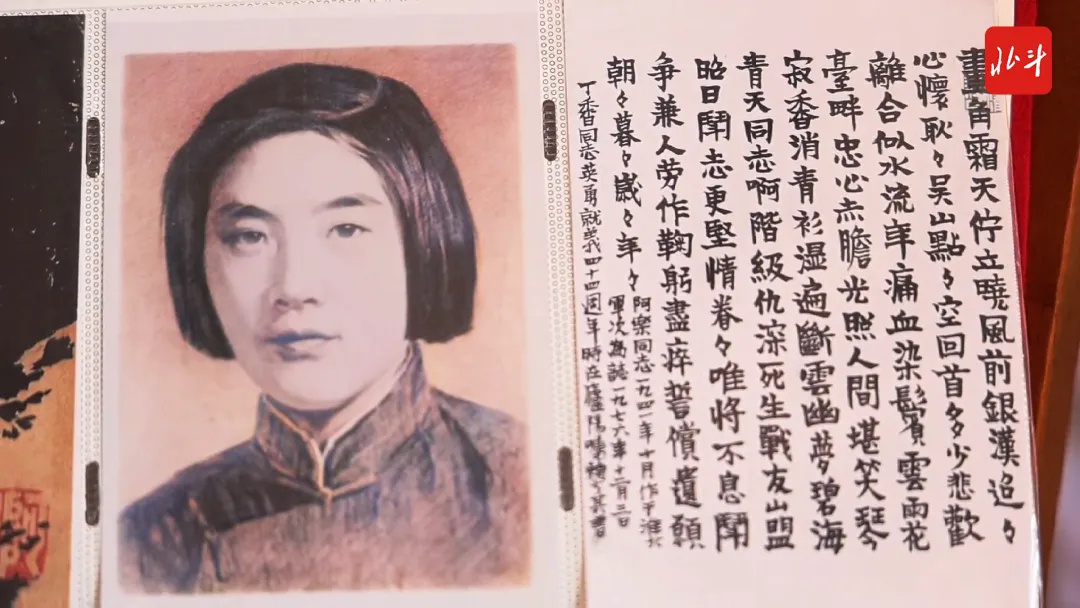 北斗
畫角霜天佇立曉風前銀漢迢々
心懷耿々吳山點々空回首多少悲歡
離合似水流年痛血染鬢雲雨花
臺畔忠心赤膽光照人間堪笑琴
寂香消青衫湿遍斷雲幽夢碧海
青天同志啊階級仇深死生戰友山盟
昭日鬪志更堅情眷々唯將不息鬪
争兼人劳作鞠躬盡瘁誓償遺願
朝々暮々歲々年々
阿樂同志一九四一年十月作于淮北
軍次為誌一九七六年十二月三日
丁香同志英勇就義四十四週年時在廬陽